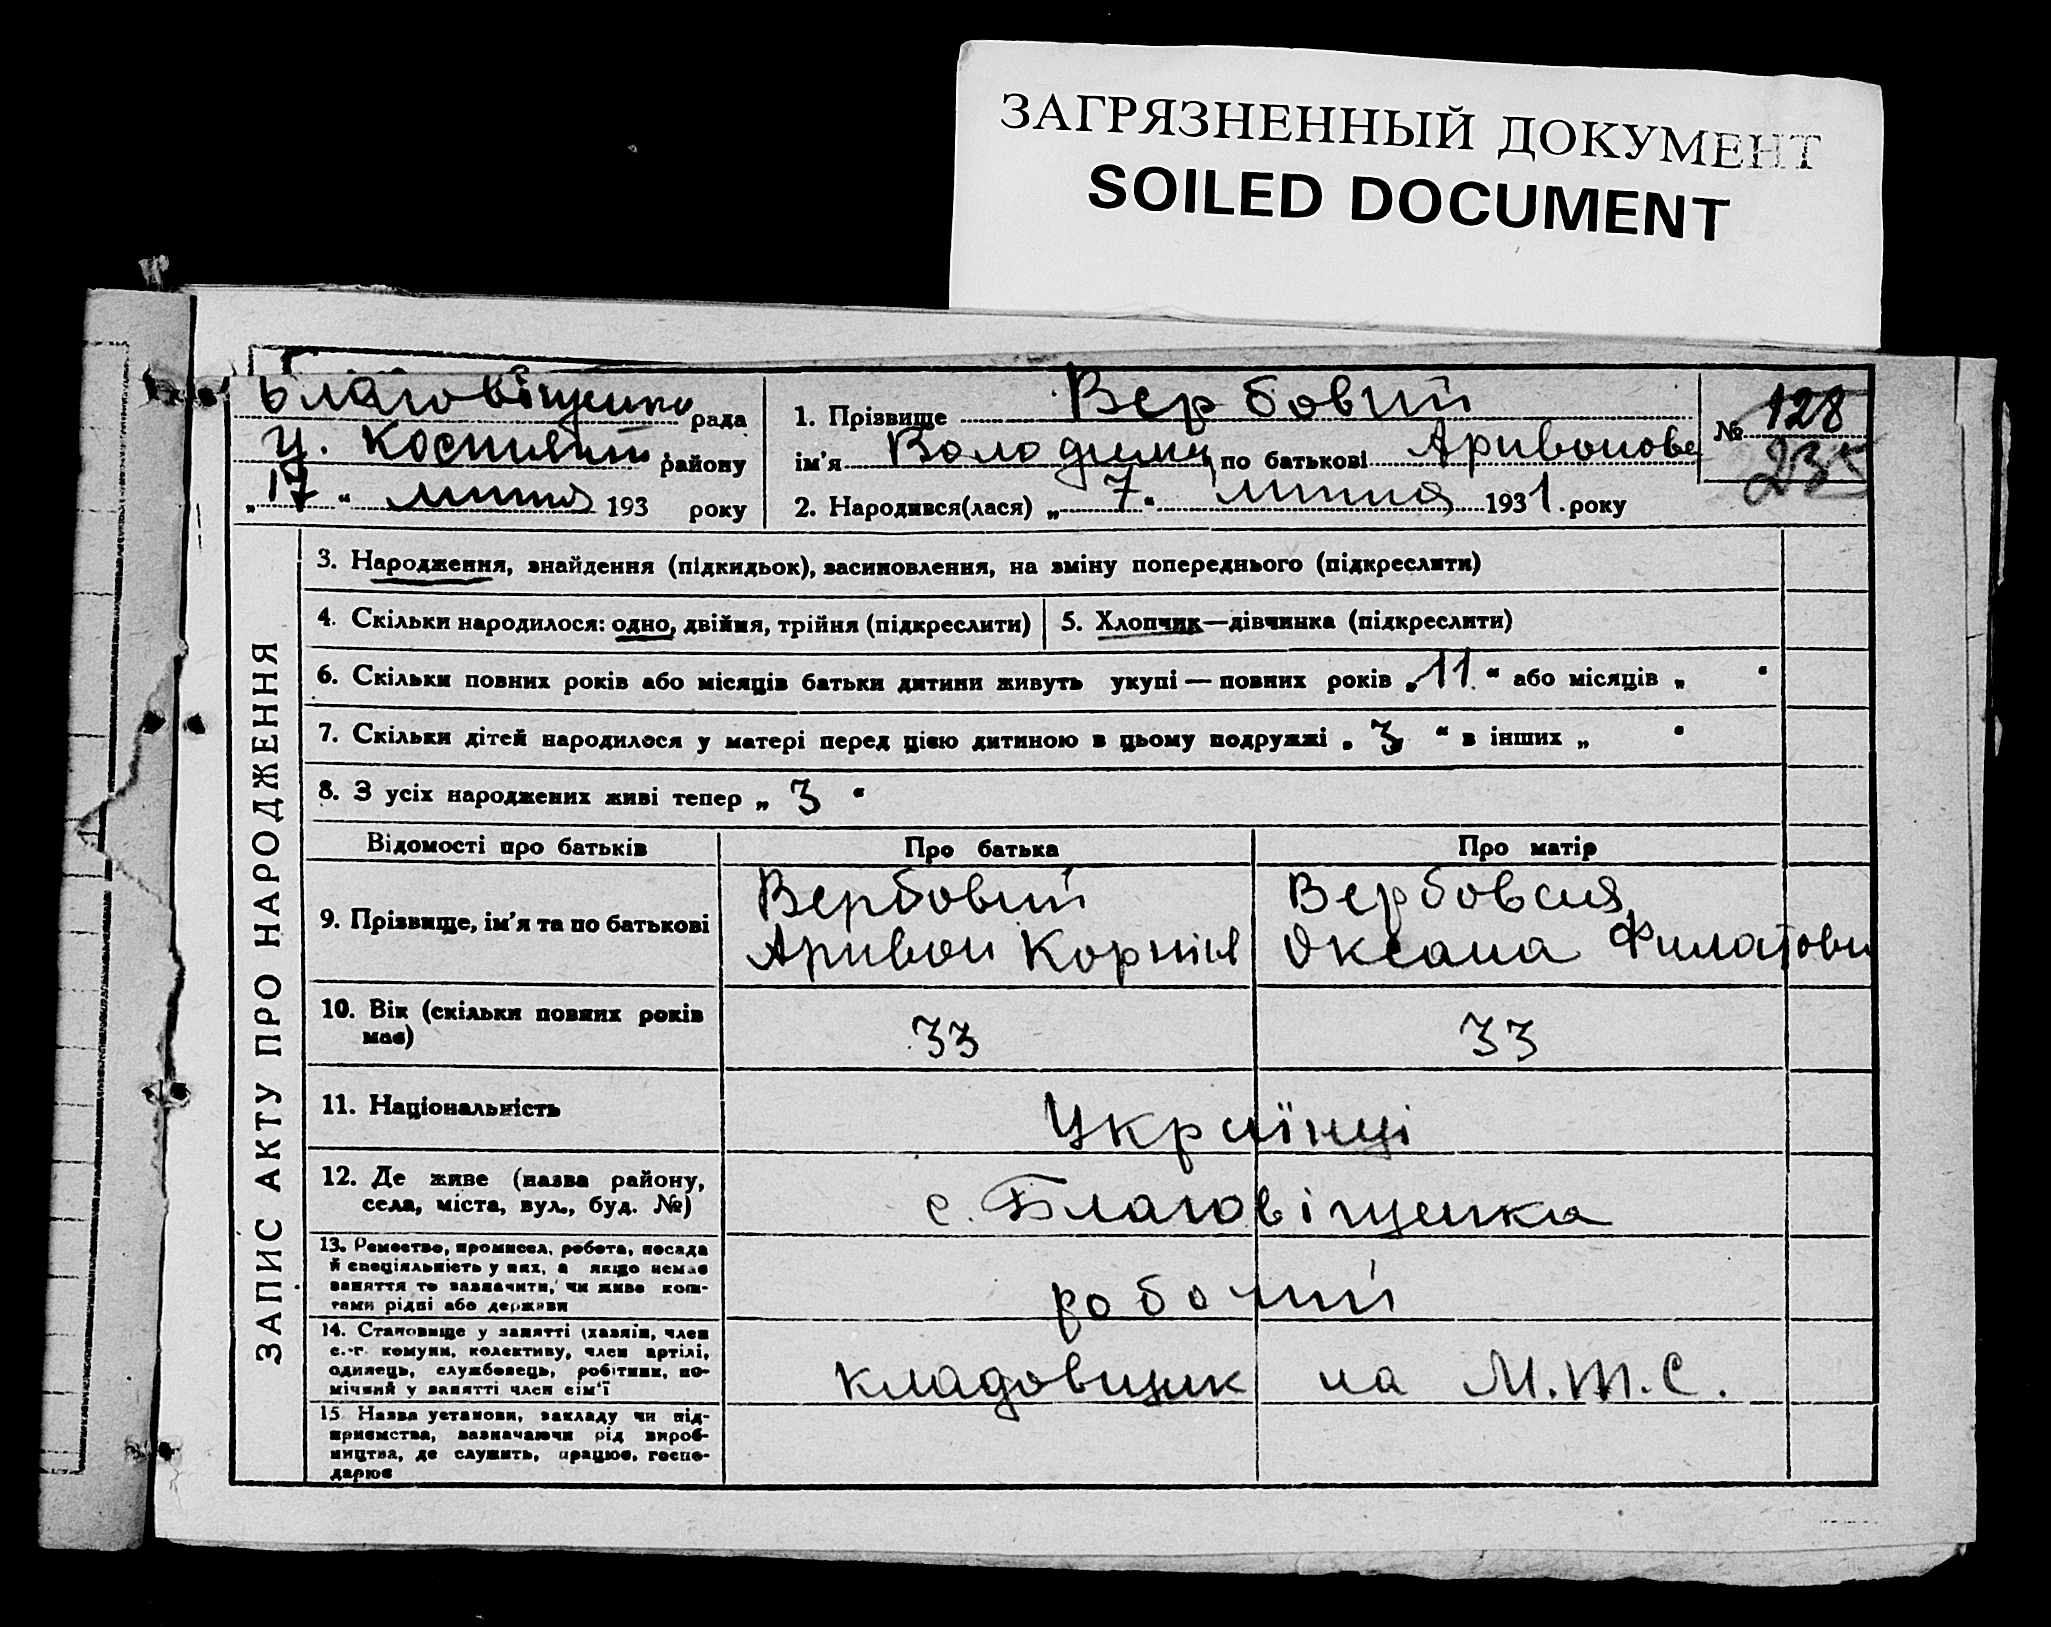 ЗАГРЯЗНЕННЫЙ ДОКУМЕНТ
SOILED DOCUMENT
Благовіщенко рада
району
„17“ липня 193 року
1. Прізвище Вербовий
ім'я Володимир по батькові Аривонове
2. Народився(лася) „7“ липня 1931 року
№ 128
235
ЗАПИС АКТУ ПРО НАРОДЖЕННЯ
3. Народження, знайдення (підкидьок), засиновлення, на зміну попереднього (підкреслити)
4. Скільки народилося: одно, двійня, трійня (підкреслити)
5. Хлопчик—дівчинка (підкреслити)
6. Скільки повних років або місяців батьки дитини живуть укупі — повних років „11“ або місяців „ “
7. Скільки дітей народилося у матері перед цією дитиною в цьому подружжі „3“ в інших „ “
8. З усіх народжених живі тепер „3“
Відомості про батьків
Про батька
Про матір
9. Прізвище, ім'я та по батькові
Вербовий
Аривон Корнієв
Вербовая
Оксана Филатовн
10. Вік (скільки повних років
має)
33
33
11. Національність
Українці
12. Де живе (назва району,
села, міста, вул., буд. №)
с. Благовіщенка
13. Ремество, промисел, робота, посада
й спеціяльність у них, а якщо немає
заняття то зазначити, чи живе кош-
тами рідні або держави
робочий
14. Становище у занятті (хазяїн, член
с.-г. комуни, колективу, член артілі,
одинець, службовець, робітник, по-
мічний у занятті член сім'ї
кладовщик на М.Т.С.
15 Назва установи, закладу чи під-
приємства, зазначаючи рід вироб-
ництва, де служить, працює, госпо-
дарює